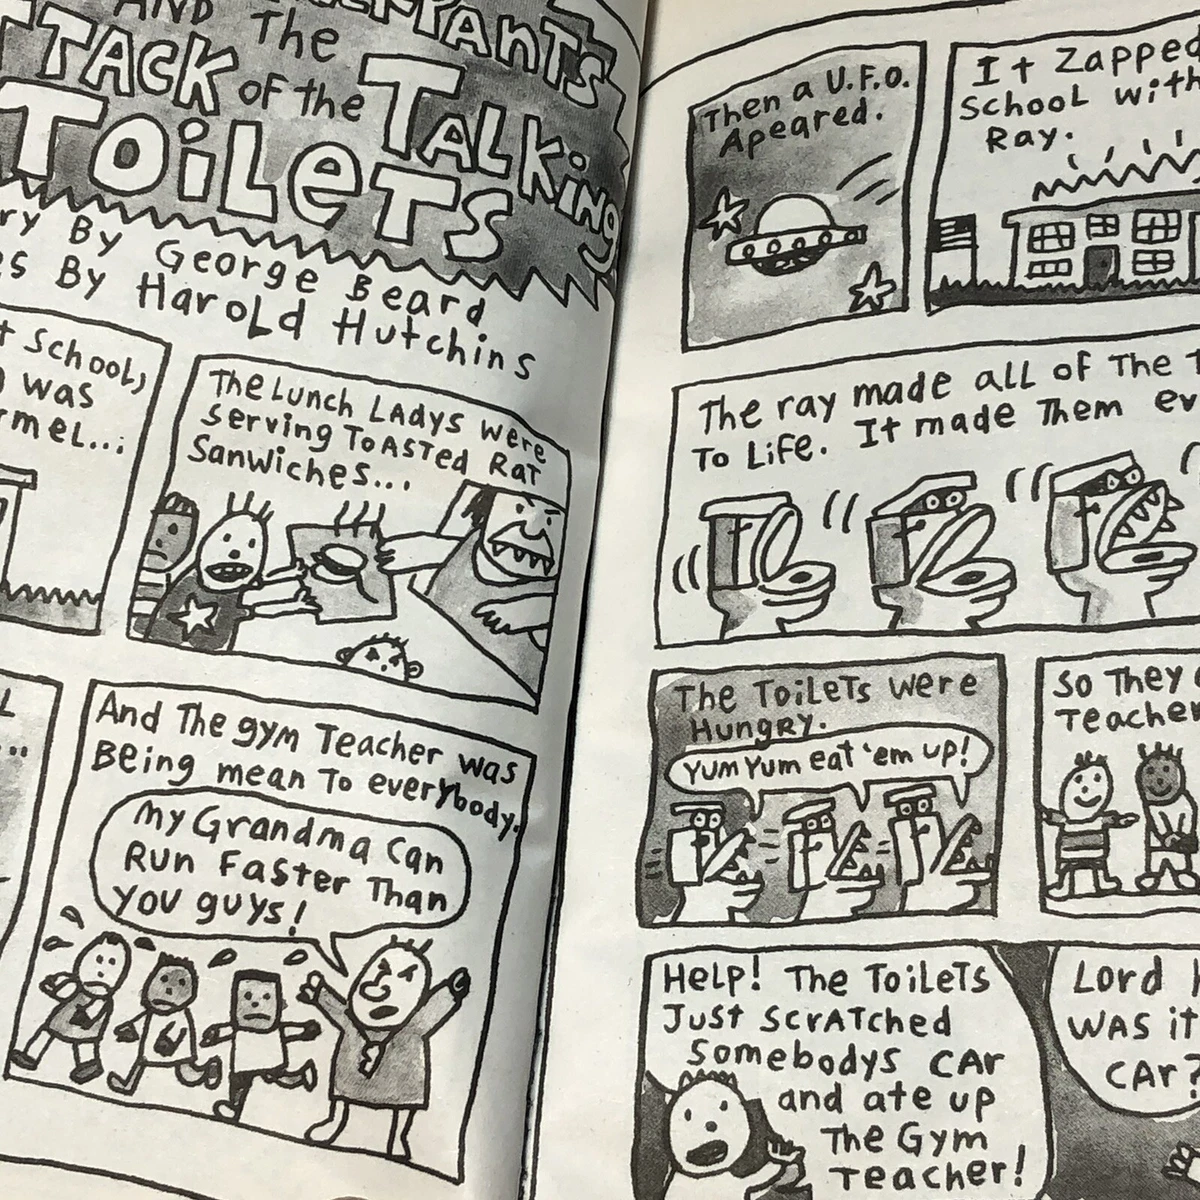 AND The
ATTACK of the TALKing
ToiLeTs
By George Beard
By HaroLd Hutchins
School,
was
The Lunch LADys were
serving ToASTed RaT
Sanwiches...
And The gym Teacher was
Being mean To everybody.
My Grandma can
Run Faster Than
you guys!
Then a U.F.O.
Apeared.
It Zapped
School with
Ray.
The ray made all of The
To Life. It made Them
The ToiLeTs were
Hungry.
Yum Yum eat 'em up!
So They
Teacher
Help! The ToiLeTs
Just ScrATched
Somebodys CAr
and ate up
The Gym
Teacher!
Lord
WAS it
CAr?